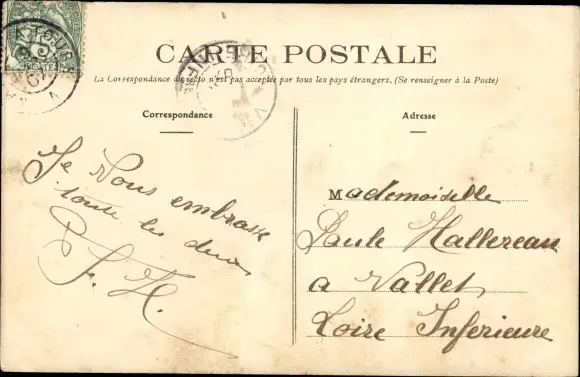 CARTE POSTALE
La Correspondance au recto n'est pas acceptée par tous les pays étrangers. (Se renseigner à la Poste)
Correspondance
Je vous embrasse
toute les deux
J. H.
Adresse
Mademoiselle
Paule Hallereau
a Vallet
Loire Inferieure